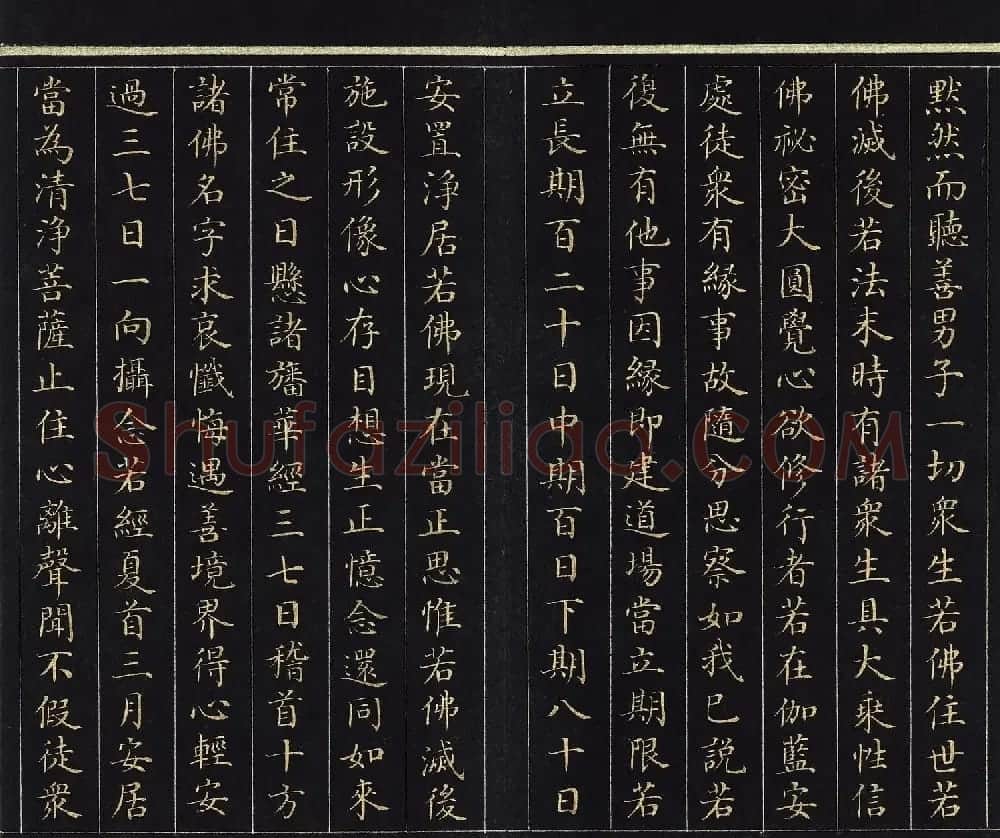 默然而聽善男子一切衆生若佛住世若
佛滅後若法末時有諸衆生具大乗性信
佛祕密大圓覺心欲修行者若在伽藍安
處徒衆有縁事故隨分思察如我已說若
復無有他事因縁即建道場當立期限若
立長期百二十日中期百日下期八十日
安置淨居若佛現在當正思惟若佛滅後
施設形像心存目想生正憶念還同如來
常住之日懸諸旛華經三七日稽首十方
諸佛名字求哀懺悔遇善境界得心輕安
過三七日一向攝念若經夏首三月安居
當為清淨菩薩止住心離聲聞不假徒衆
Shufaziliao.COM